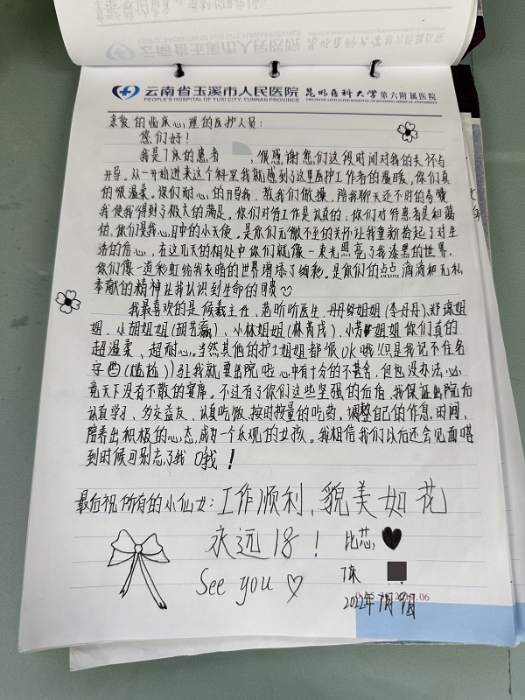 云南省玉溪市人民医院 昆明医科大学第六附属医院
PEOPLE'S HOSPITAL OF YUXI CITY, YUNNAN PROVINCE
亲爱的临床心理的医护人员：
您们好！
我是7床的患者 ，很感谢您们这段时间对我的关怀与
开导，从一开始进来这个科里我就感到了这里医护工作者的温暖，你们真
的很温柔，你们耐心的开导我，教我们做操，陪我聊天还不时的夸赞
我使我得到了极大的满足。你们对待工作是认真的；你们对待患者是和蔼
的，你们是我心目中的小天使，是你们无微不至的关怀让我重新拾起了对生
活的信心，在这几天的相处中你们就像一束光照亮了我漆黑的世界，
你们像一道彩虹给我灰暗的世界增添了绚艳。是你们的点点滴滴和无私
奉献的精神让我认识到生命的可贵
我最喜欢的是侯羲主任，范昕昕医生，丹丹姐姐(李丹丹)、郑璇姐
姐、小胡姐姐、小林姐姐、小芳姐姐你们真的
超温柔、超耐心。当然其他的护士姐姐都很ok哦！只是我记不住名
字西(尴尬)轻我就要出院啦心中有十分的不甚舍，但也没办法，必
竟天下没有不散的宴席。不过有了你们这些坚强的后盾，我保证出院后
认真学习、多交益友、认真吃饭、按时按量的吃药，调整自己的作息时间，
陪养出积极的心态，成为一个乐观的女孩。我相信我们以后还会见面嗒
到时候可别忘了我哦！
最后祝所有的小仙女：工作顺利，貌美如花
永远18！ 比芯
See you 7床
2022年7月9日